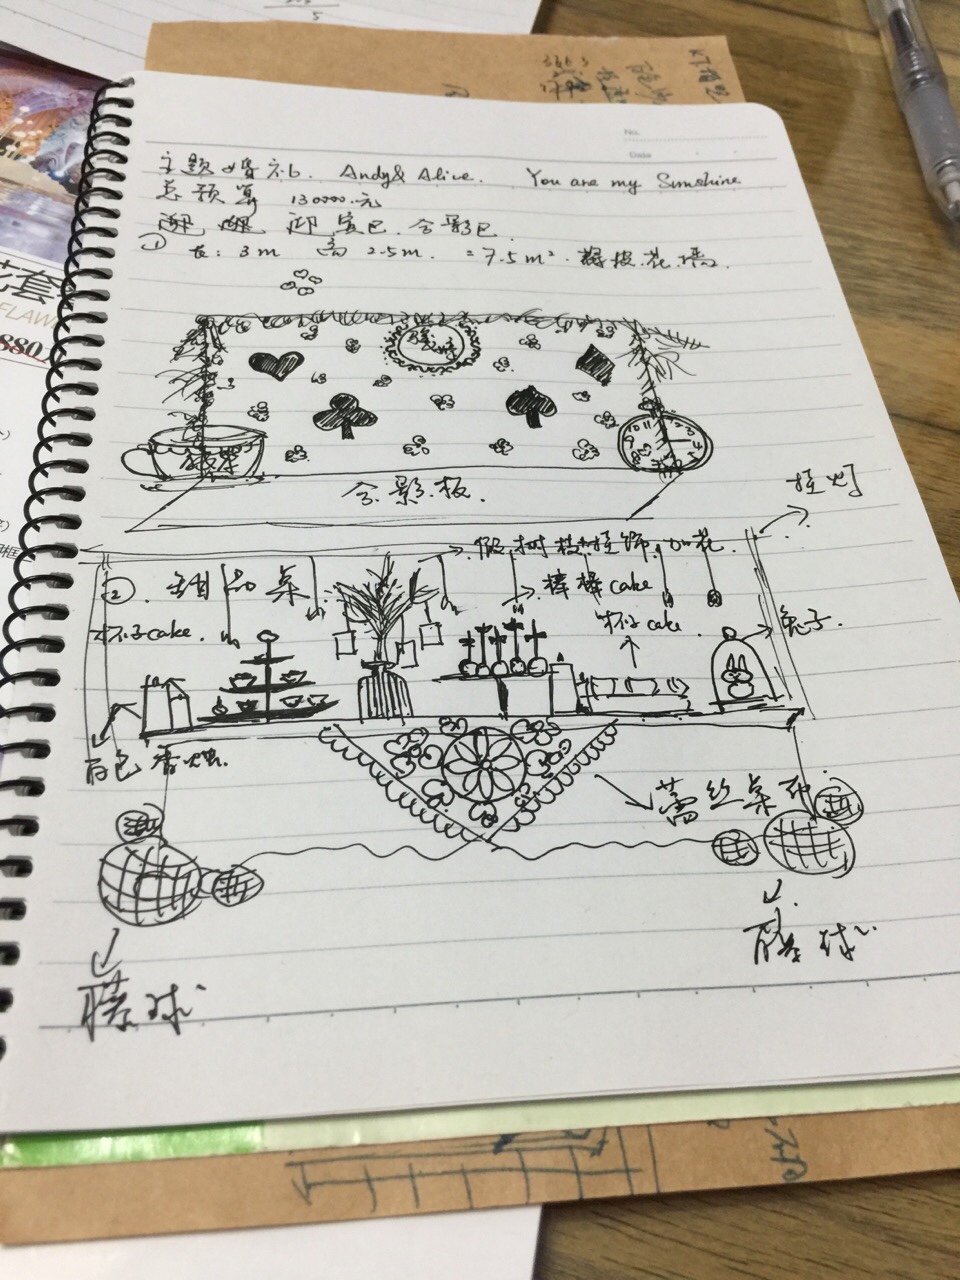 主题婚礼. Andy & Alice. You are my Sunshine
总预算 130000.元
迎宾区.合影区
① 长: 3m 高 2.5m. =7.5m². 花墙.
合影板.
挂灯
假树枝挂饰.如花.
② 甜品桌
棒棒cake
杯子cake.
杯子cake
兔子.
白色香烛.
蕾丝桌布
藤球
藤球
No.
Date
花套
FLAW
880